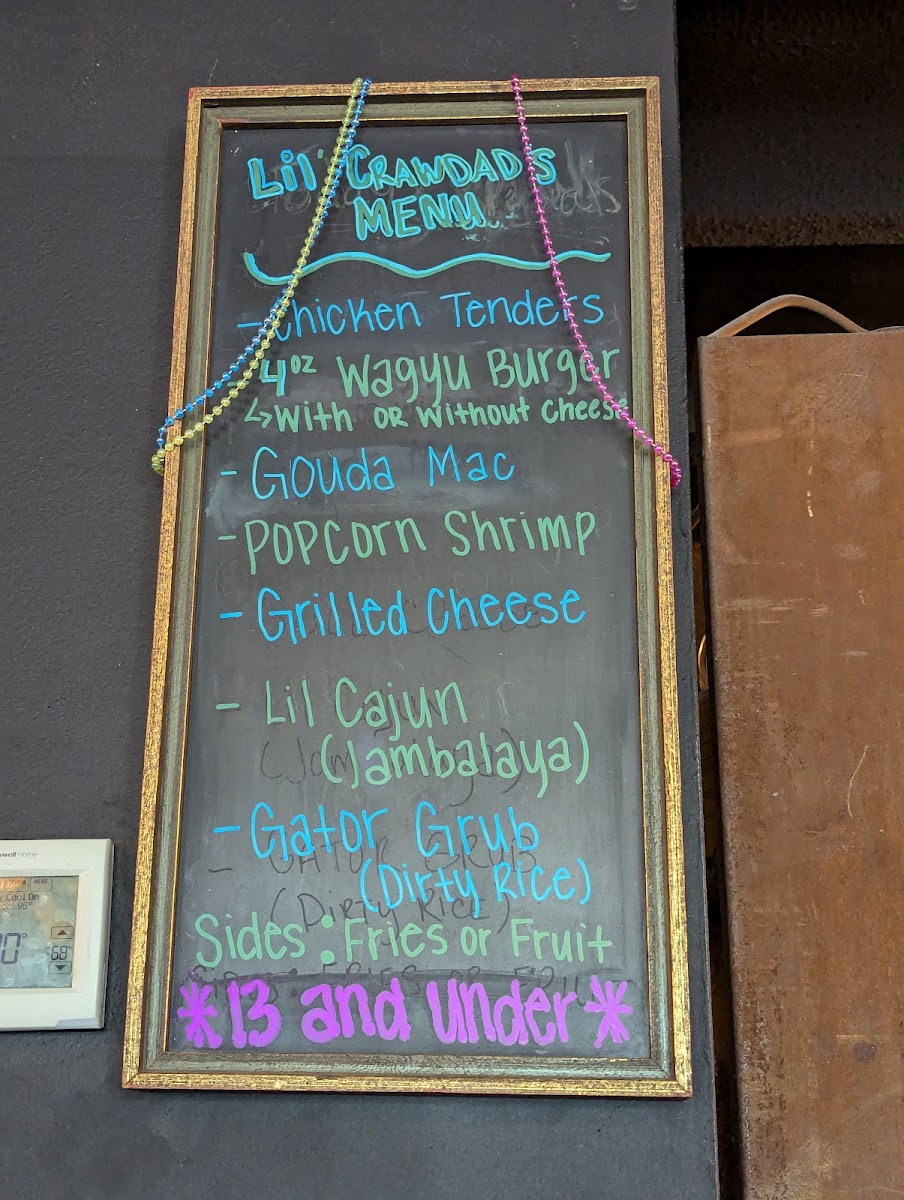 Lil' CRAWDAD'S
MENU
- Chicken Tenders
- 4oz Wagyu Burger
↳ With OR Without Cheese
- Gouda Mac
- POPCorn Shrimp
- Grilled Cheese
- Lil Cajun
(Jambalaya)
- Gator Grub
(Dirty Rice)
Sides: Fries or Fruit
*13 and under*
Home
MENU
Cool On
96°
68°